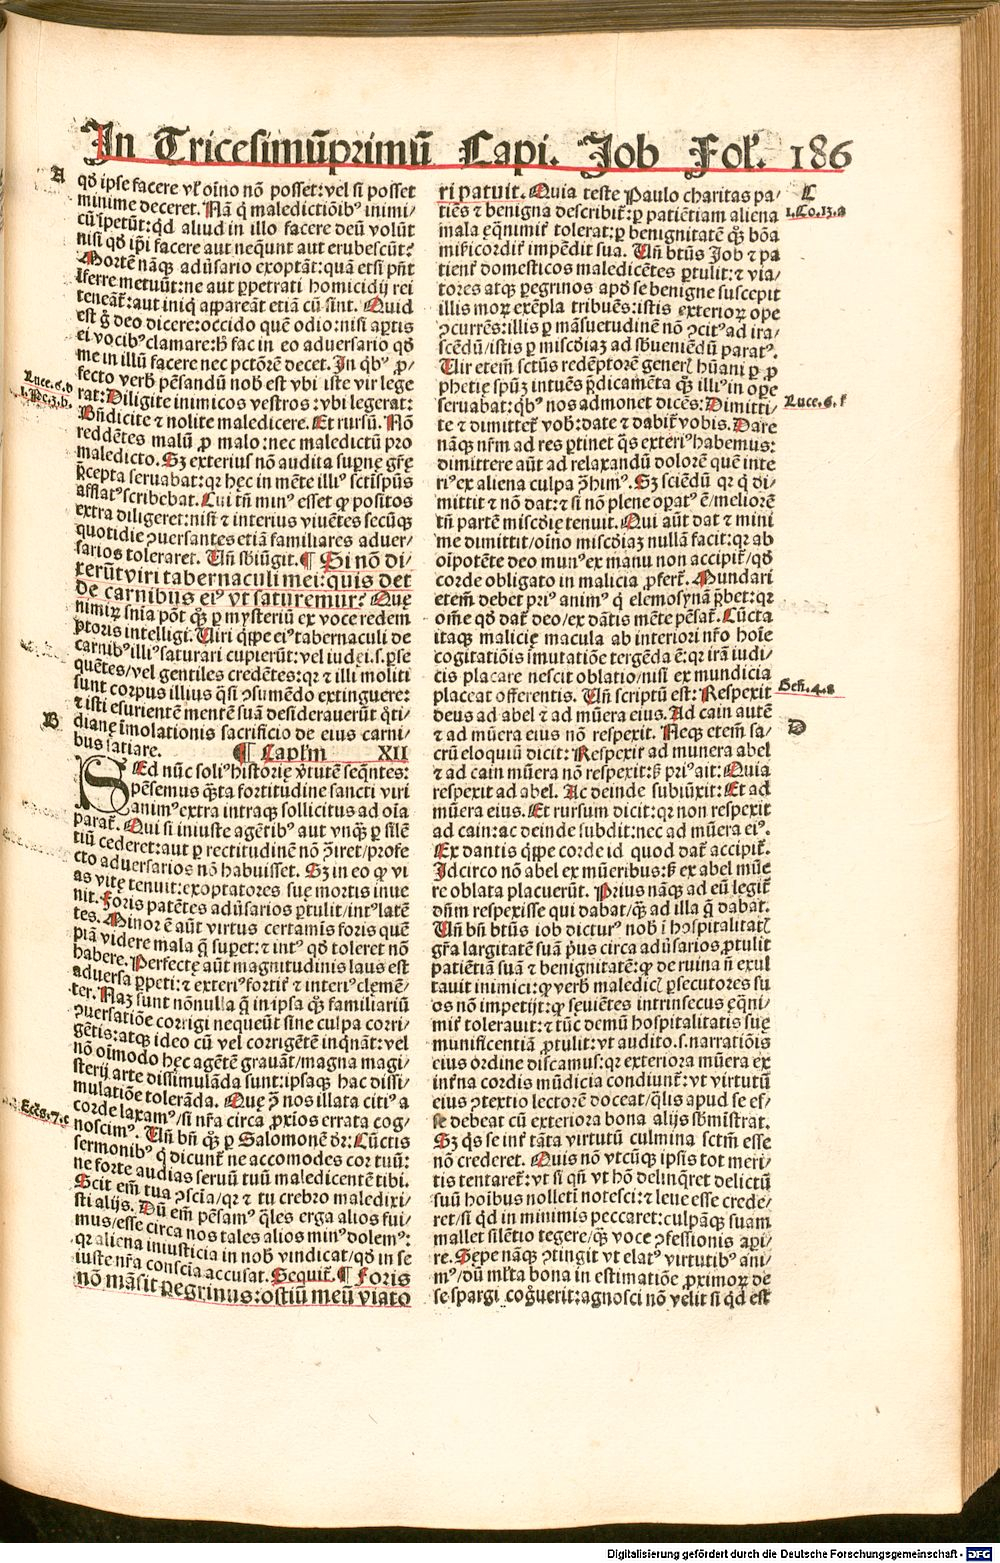 In Tricesimūprimū Capi. Job Fol. 186
A
qđ ipse facere vl' oīno nō posset: vel si posset
minime deceret. Nā q̇ maledictiōibꝰ inimi/
cū īpetūt: qđ aliud in illo facere deū volūt
nisi qđ ip̄i facere aut neq̄unt aut erubescūt?
Mortē nāqꝫ adūsario exoptāt: quā etsi pn̄t
īferre metuūt: ne aut ꝑpetrati homicidij rei
teneāt̄: aut iniq̇ appareāt etiā cū sint. Quid
est g̊ deo dicere: occido quē odio: nisi aꝑtis
ei vocibꝰ clamare: h̄ fac in eo adversario qđ
me in illū facere nec pctōrē decet. In qb̄ꝰ ꝓ/
fecto verb̄ pēsandū nob̄ est vbi iste vir lege
Luce.6.d
rat: Diligite inimicos vestros: vbi legerat:
Bn̄dicite ⁊ nolite maledicere. Et rursū. Nō
reddētes malū ꝓ malo: nec maledictū pro
maledicto. Sꝫ exterius nō audita suꝑnę gr̄ę
p̄cepta seruabat: qꝛ hęc in mēte illiꝰ sctīspūs
afflatꝰ scribebat. Cui tn̄ minꝰ esset ꝙ positos
extra diligeret: nisi ⁊ interius viuētes secūqꝫ
quotidie ↄuersantes etiā familiares aduer/
sarios toleraret. Vn̄ sb̄iūgit. ¶ Si nō di/
xerūt viri tabernaculi mei: quis det
de carnibus eiꝰ vt saturemur? Quę
nimiꝝ sn̄ia pōt qꝫ̄ ꝑ mysteriū ex voce redem
ptoris intelligi. Viri q̇ppe eiꝰ tabernaculi de
carnibꝰ illiꝰ saturari cupierūt: vel iudei.s.ꝑse
quētes/vel gentiles credētes: qꝛ ⁊ illi moliti
sunt corpus illius q̄si ↄsumēdo extinguere:
⁊ isti esurientē mentē suā desiderauerūt q̊ti/
B
dianę īmolationis sacrificio de eius carni/
bus satiare. ¶ Caplm XII
SEd nūc soliꝰ historię v̇tutē seq̄ntes:
pēsemus q̄ta fortitudine sancti viri
animꝰ extra intraqꝫ sollicitus ad oīa
parat̄. Qui si iniuste agētibꝰ aut vnq̄ꝫ ꝑ silē
tiū cederet: aut ꝑ rectitudinē nō ꝯiret/profe
cto aduersarios nō habuisset. Sꝫ in eo ꝙ vi
as vitę tenuit: exoptatores suę mortis inue
nit. Foris patētes adūsarios ꝑtulit/intꝰ latē
tes. Minor ē aūt virtus certamis foris quē
piā videre mala q̄ suꝑet: ⁊ intꝰ qđ toleret nō
habere. Perfectę aūt magnitudinis laus est
aduersa ꝑpeti: ⁊ exteriꝰ fortit̄ ⁊ interiꝰ clemē/
ter. Naꝫ sunt nōnulla q̄ in ipsa q̄ꝫ familiariū
ↄuersatiōe corrigi nequeūt sine culpa corri/
gētis: atqꝫ ideo cū vel corrigētē inq̇nāt: vel
nō oīmodo hęc agētē grauāt/magna magi/
sterij arte dissimulāda sunt: ipsaqꝫ hac dissi/
mulatiōe tolerāda. Quę ꝯ nos illata citiꝰ a
Eccs.7.c
corde laxamꝰ/si nr̄a circa ꝓxīos errata cog/
noscimꝰ. Vn̄ bn̄ q̄ꝫ ꝑ Salomonē dr̄: Cūctis
sermonibꝰ q̇ dicunt̄ ne accomodes cor tuū:
ne forte audias seruū tuū maledicentē tibi.
Scit em̄ tua ↄscia/qꝛ ⁊ tu crebro maledixi/
sti alijs. Dū em̄ pēsamꝰ q̄les erga alios fui/
mus/esse circa nos tales alios minꝰ dolemꝰ:
qꝛ aliena iniusticia in nob̄ vindicat/qđ in se
iuste nr̄a conscia accusat. Sequit̄. ¶ Foris
nō māsit ꝑegrinus: ostiū meū viato
C
ri patuit. Quia teste Paulo charitas pa/
1.Co.13.a
tiēs ⁊ benigna describit̄: ꝑ patiētiam aliena
mala ęq̄nimit̄ tolerat: ꝑ benignitatē q̄ꝫ bōa
misericordit̄ impēdit sua. Vn̄ btūs Job ⁊ pa
tient̄ domesticos maledicētes ꝑtulit: ⁊ via/
tores atqꝫ ꝑegrinos apđ se benigne suscepit
illis moꝝ exēpla tribuēs: istis exterioꝝ ope
ↄcurrēs: illis ꝑ māsuetudinē nō ↄcitꝰ ad ira/
scēdū/istis ꝑ miscd̄iaz ad sb̄ueniēdū paratꝰ.
Vir etem̄ sctūs redēptorē generꝭ hūani ꝑ ꝓ
phetię spūꝫ intuēs p̄dicamēta q̄ꝫ illiꝰ in oꝑe
seruabat: qb̄ꝰ nos admonet dicēs: Dimitti/
Luce.6.f
te ⁊ dimittet̄ vob̄: date ⁊ dabit̄ vobis. Dare
nāqꝫ nr̄m ad res ꝑtinet q̄s exteriꝰ habemus:
dimittere aūt ad relaxandū dolorē quē inte
riꝰ ex aliena culpa ꝯhimꝰ. Sꝫ sciēdū qꝛ q̇ di/
mittit ⁊ nō dat: ⁊ si nō plene oꝑatꝰ ē/meliorē
tn̄ partē miscd̄ie tenuit. Qui aūt dat ⁊ mini
me dimittit/oīno miscd̄iaꝫ nullā facit: qꝛ ab
oīpotēte deo munꝰ ex manu non accipit̄/qđ
corde obligato in malicia ꝓfert̄. Mundari
etem̄ debet priꝰ animꝰ q̇ elemosynā p̄bet: qꝛ
om̄e qđ dat̄ deo/ex dātis mēte pēsat̄. Cūcta
itaqꝫ malicię macula ab interiori nr̄o hoīe
cogitatiōis īmutatiōe tergēda ē: qꝛ irā iudi/
cis placare nescit oblatio/nisi ex mundicia
Gen̄.4.a
placeat offerentis. Vn̄ scriptū est: Respexit
deus ad abel ⁊ ad mūera eius. Ad cain autē
D
⁊ ad mūera eius nō respexit. Neqꝫ etem̄ sa/
crū eloquiū dicit: Respexit ad munera abel
⁊ ad cain mūera nō respexit: sꝫ priꝰ ait: Quia
respexit ad abel. Ac deinde subiūxit: Et ad
mūera eius. Et rursum dicit: qꝛ non respexit
ad cain: ac deinde subdit: nec ad mūera eiꝰ.
Ex dantis q̇ppe corde id quod dat̄ accipit̄.
Idcirco nō abel ex mūeribus: sꝫ ex abel mūe
re oblata placuerūt. Prius nāqꝫ ad eū legit̄
dn̄m respexisse qui dabat/q̄ꝫ ad illa q̄ dabat.
Vn̄ bn̄ btūs iob dicturꝰ nob̄ ī hospitalitatꝭ
gr̄a largitatē suā ṗus circa adūsarios ꝓtulit
patiētiā suā ⁊ benignitatē: ꝙ de ruina n̄ exul
tauit inimici: ꝙ verb̄ maledicꝭ ꝑsecutores su
os nō impetijt: ꝙ sęuiētes intrinsecus ęq̄ni/
mit̄ tolerauit: ⁊ tūc demū hospitalitatis suę
munificentiā ꝓtulit: vt audito.s.narratiōis
eius ordine discamus: qꝛ exteriora mūera ex
int̄na cordis mūdicia condiunt̄: vt virtutū
eius ↄtextio lectorē doceat/q̄lis apud se es/
se debeat cū exteriora bona alijs sb̄mīstrat.
Sꝫ q̇s se int̄ tāta virtutū culmina sctm̄ esse
nō crederet. Quis nō vtcūqꝫ ipsis tot meri/
tis tentaret̄: vt si qn̄ vt hō delinq̄ret delictū
suū hoībus nolleti notesci: ⁊ leue esse crede/
ret/si qđ in minimis peccaret: culpāqꝫ suam
mallet silētio tegere/q̄ꝫ voce ↄfessionis aꝑi/
re. Sępe nāqꝫ ↄtingit vt elatꝰ virtutibꝰ ani/
mꝰ/dū ml̄ta bona in estimatiōe ꝓximoꝝ de
se spargi cog̊uerit: agnosci nō velit si qđ est
Digitalisierung gefördert durch die Deutsche Forschungsgemeinschaft - DFG